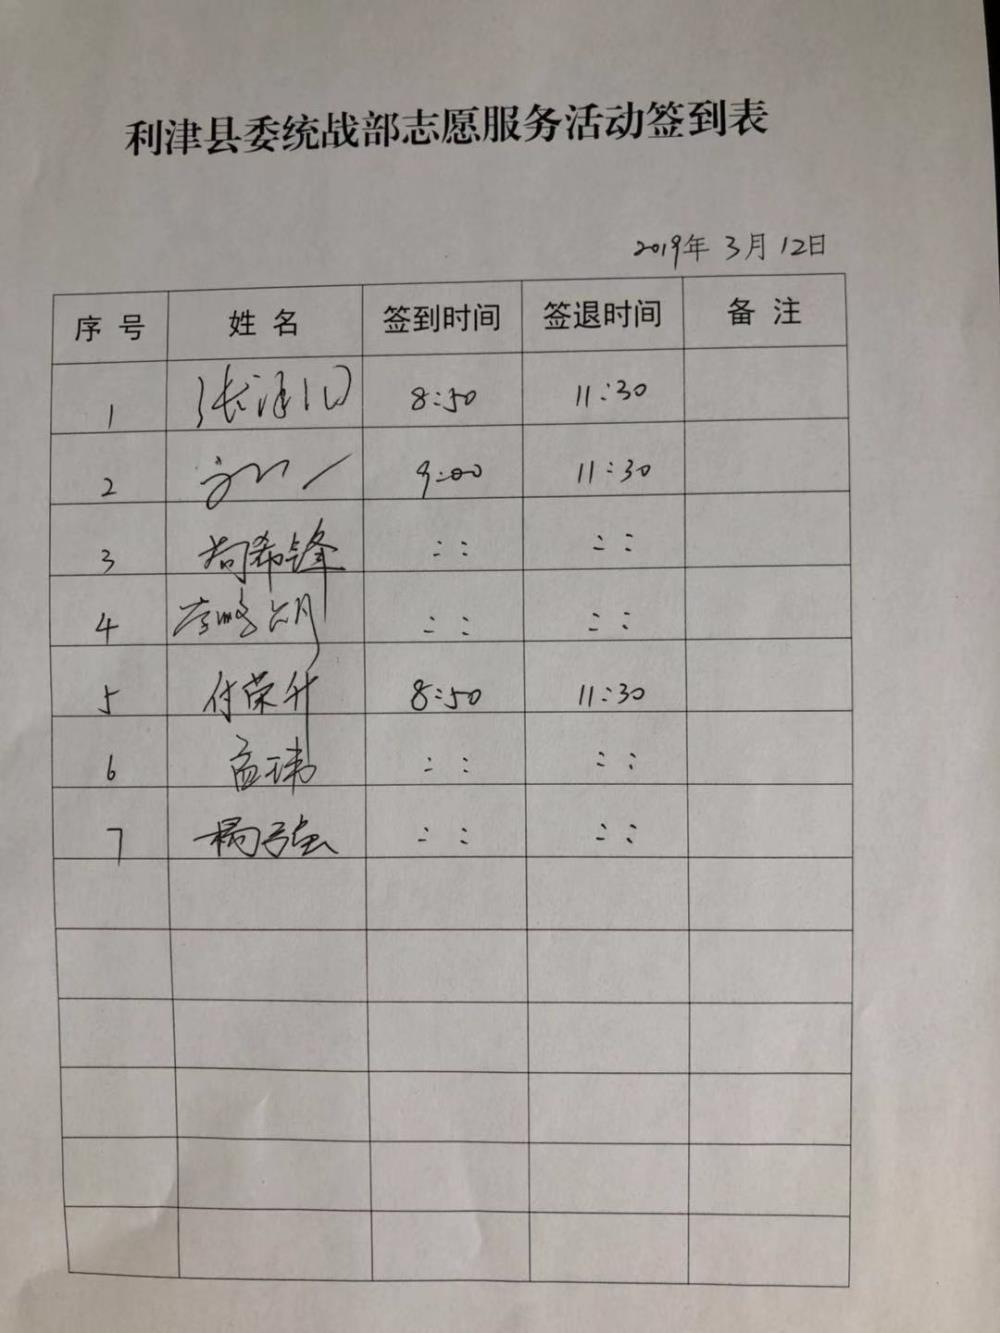 利津县委统战部志愿服务活动签到表
2019年 3月 12日
序 号 姓 名 签到时间 签退时间 备 注
1 张 8:50 11:30
2 9:00 11:30
3 苟希锋 : : : :
4 李 : : : :
5 付荣升 8:50 11:30
6 孟玮 : : : :
7 杨强 : : : :